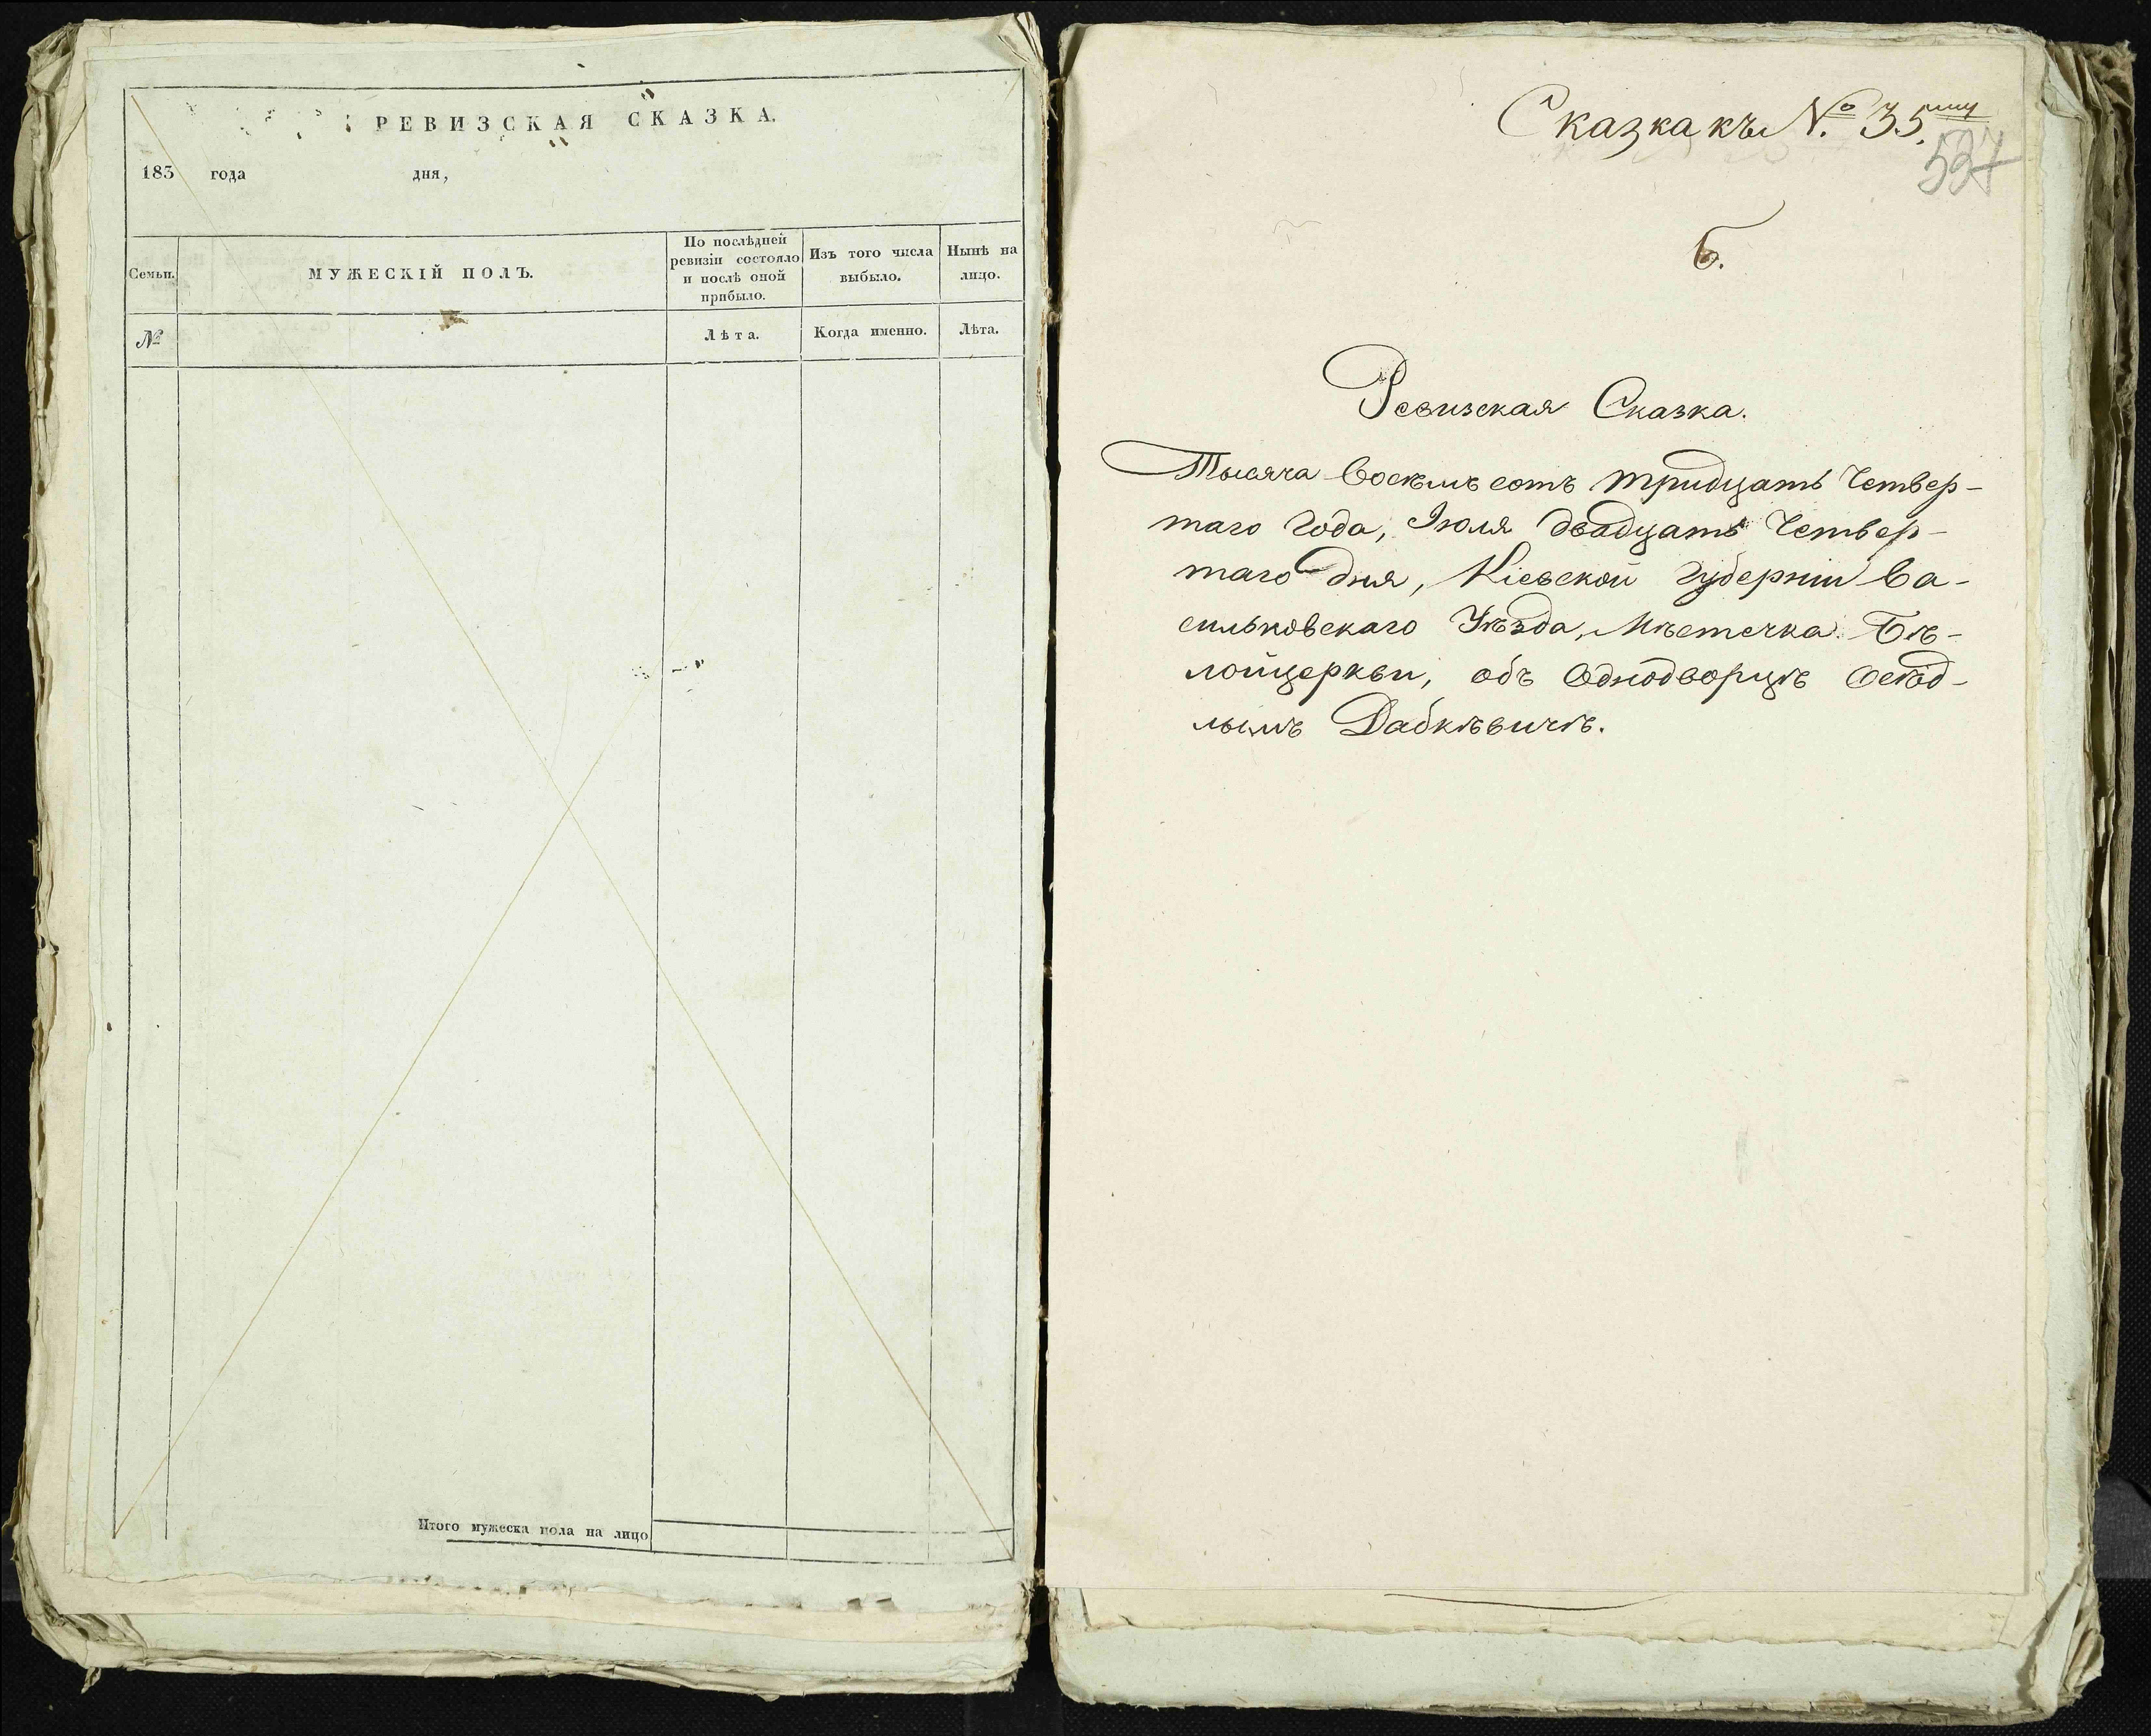 РЕВИЗСКАЯ СКАЗКА.
183 года дня,
Семьи.
МУЖЕСКІЙ ПОЛЪ.
По послѣдней
ревизіи состояло
и послѣ оной
прибыло.
Изъ того числа
выбыло.
Нынѣ на
лицо.
№
Лѣта.
Когда именно.
Лѣта.
Итого мужеска пола на лицо
Сказка къ № 35.
537
Б.
Ревизская Сказка.
Тысяча Восѣмъ сотъ тридцать Четвер-
таго Года, Іюля двадцать Четвер-
таго дня, Кіевской Губерніи Ва-
сильковскаго Уѣзда, Мѣстечка Бѣ-
лойцеркви, объ Однодворцѣ Осѣд-
лымъ Дабкѣвичѣ.